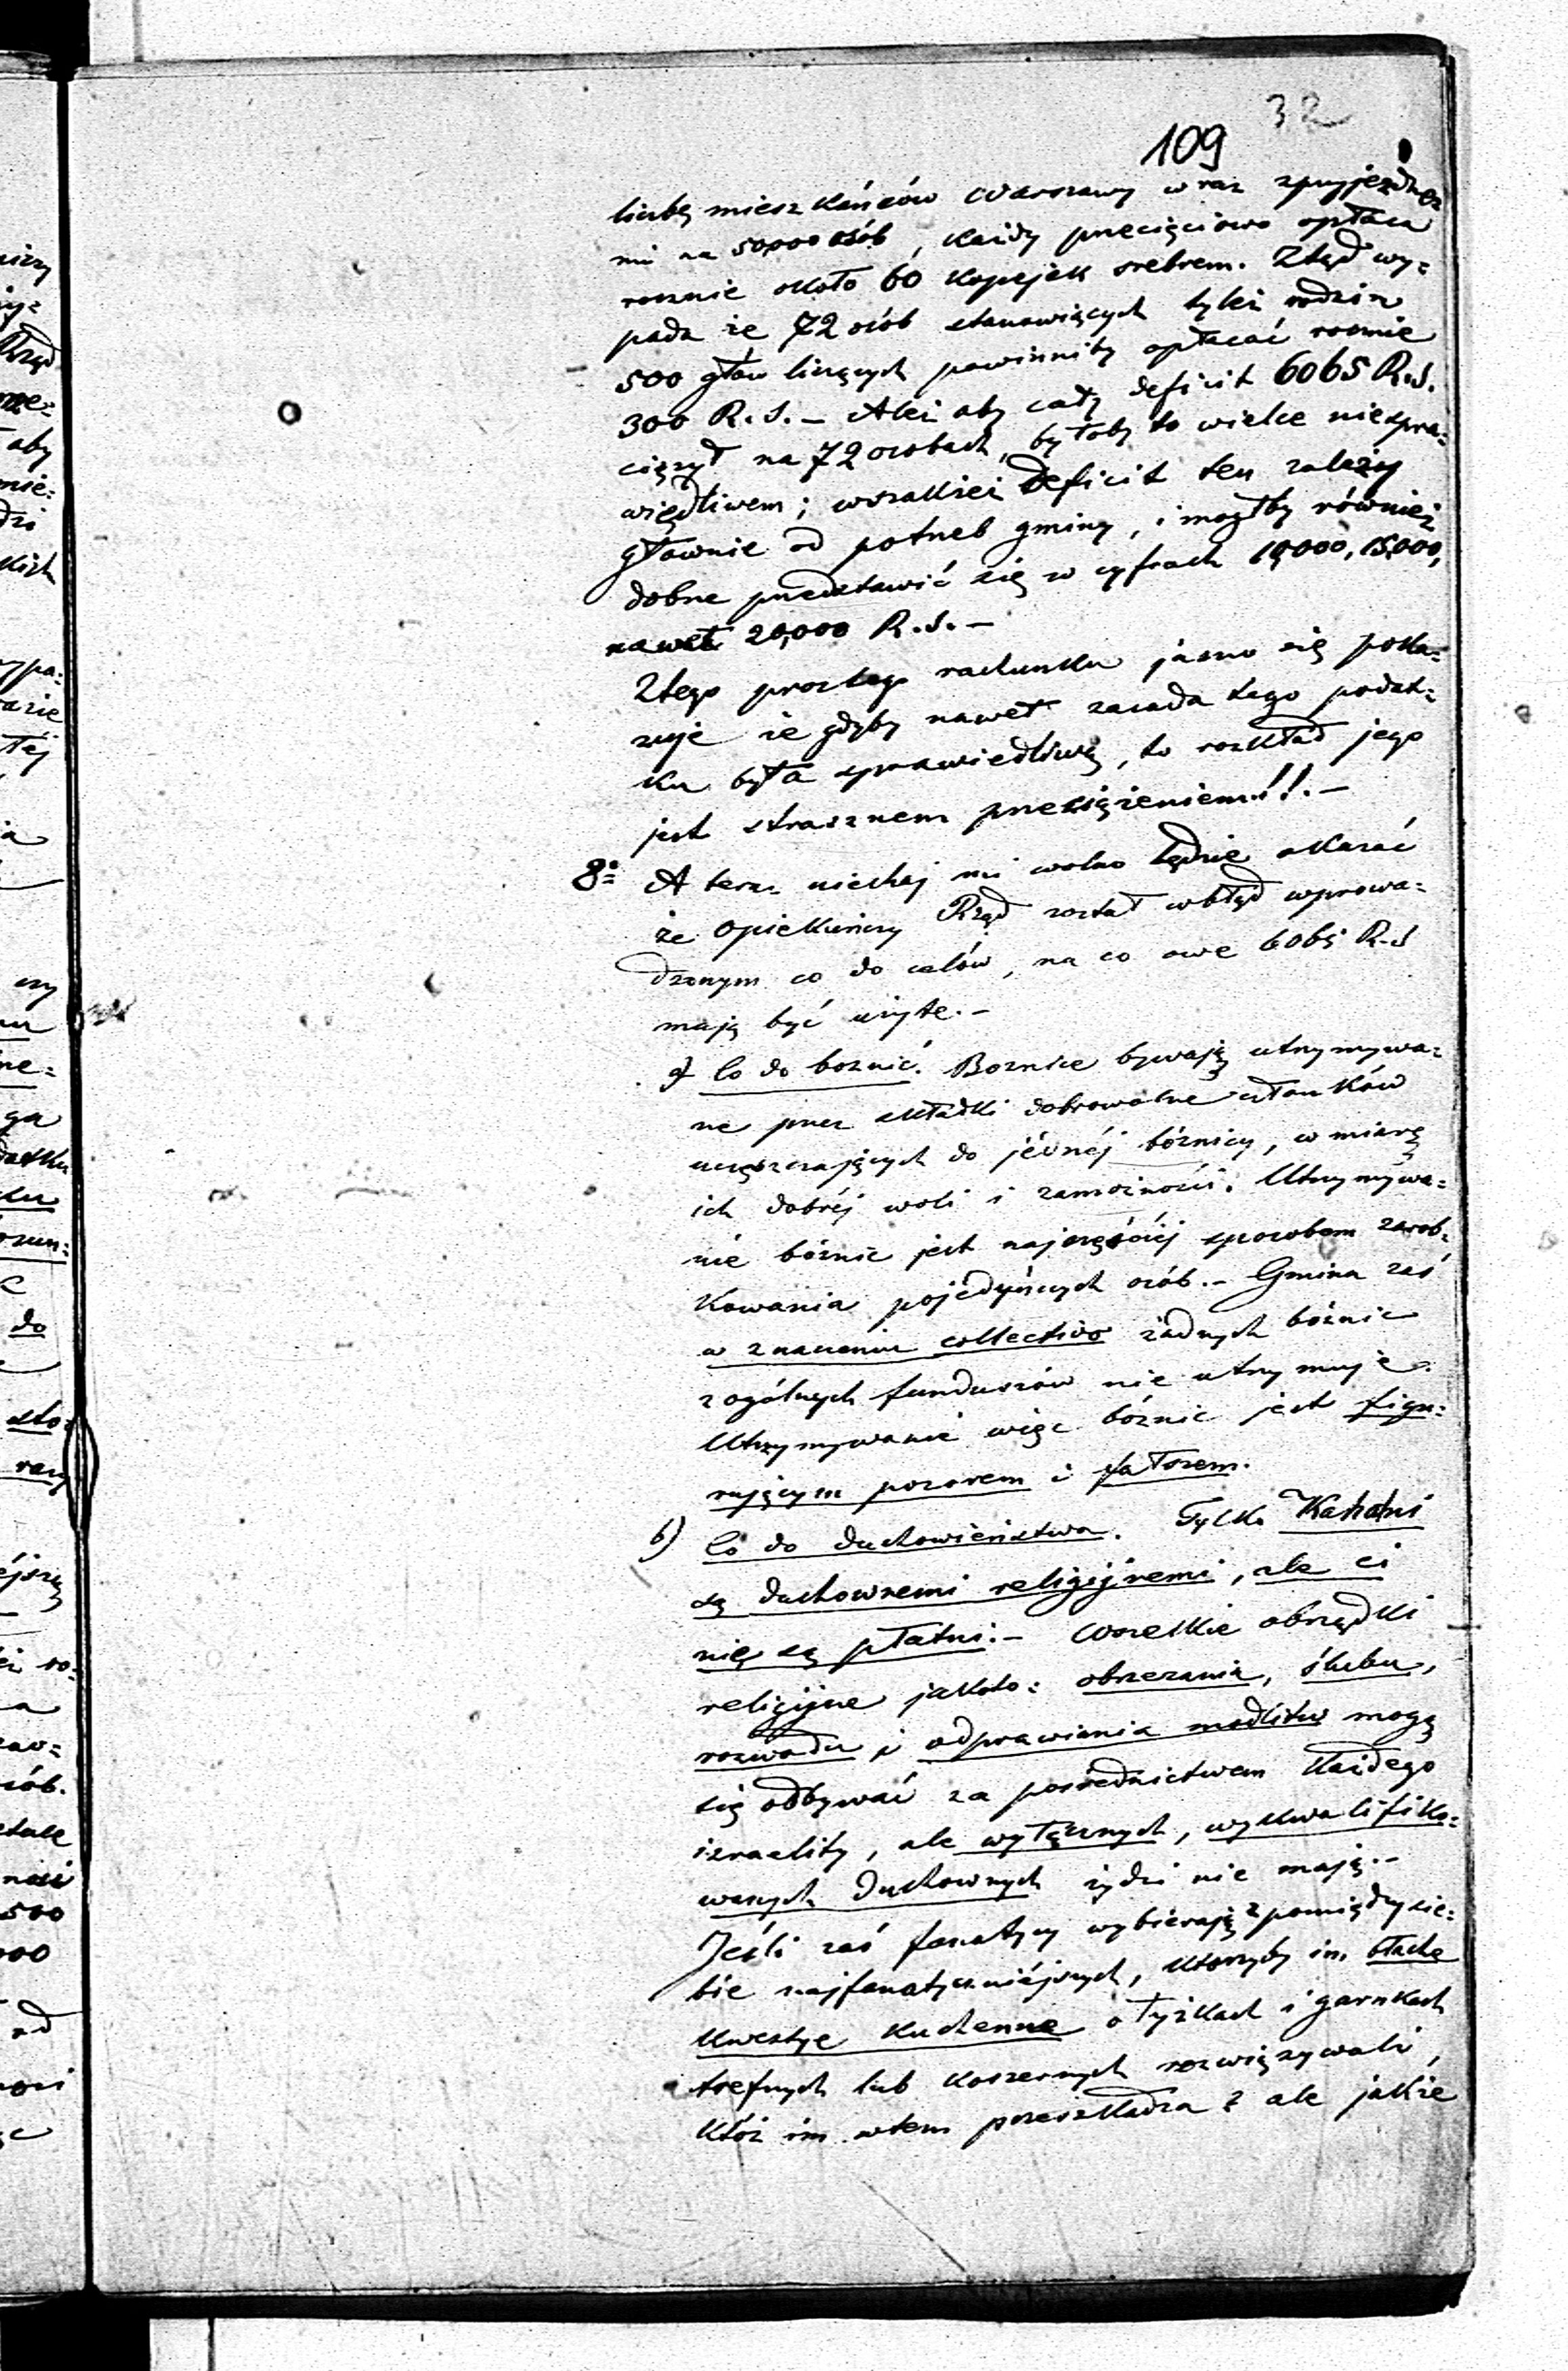 32
109
liczbę mieszkańców Warszawy wraz zprzyjezdne
mi na 50,000 osób, każdy przecięciowo opłaca
rocznie około 60 kopejek srebrem. Ztąd wy=
pada że 72 osób stanowiących tyleż rodzin
500 głów liczących powinniby opłacać rocznie
300 R.S. – Ależ aby cały deficit 6065 R.S.
ciężył na 72 osobach, byłoby to wielce niespra=
wiedliwem; wszakżeż Deficit ten zależy
głównie od potrzeb gminy, i mógłby również
dobrze przedstawić się w cyfrach 10,000, 15,000,
nawet 20,000 R.S. –
Ztego prostego rachunku jasno się poka=
zuje że gdyby nawet zasada tego podat=
ku była sprawiedliwą, to rozkład jego
jest strasznem przeciążeniem!!! –
8: A teraz niechaj mi wolno będzie okazać
że Opiekuńczy Rząd został wbłąd wprowa=
dzonym co do celów, na co owe 6065 R.S
mają być użyte. –
a) Co do bożnic. Bożnice bywają utrzymywa=
ne przez składki dobrowolne członków
uczęszczających do jednéj bóżnicy, w miarę
ich dobréj woli i zamożności. Utrzymywa=
nie bóżnic jest najczęściéj sposobem zarob=
kowania pojedyńczych osób. – Gmina zaś
w znaczeniu collectivo żadnych bóżnic
z ogólnych funduszów nie utrzymuje.
Utrzymywanie więc bóżnic jest figu=
rującym pozorem i fałszem.
b) Co do duchowieństwa. Tylko Kahalni
są duchownemi religijnemi, ale ci
nie są płatni. – Wszelkie obrządki
religijne jakoto: obrzezania, ślubu,
rozwodu i odprawiania modlitw mogą
się odbywać za pośrednictwem każdego
izraelity, ale wyłącznych, wykwalifiko=
wanych duchownych żydzi nie mają. –
Jeśli zaś fanatycy wybierają z pomiędzy sie=
bie najfanatyczniéjszych, którzyby im błache
kwestye kuchenne o łyżkach i garnkach
trefnych lub koszernych rozwiązywali,
któż im wtem przeszkadza? ale jakże